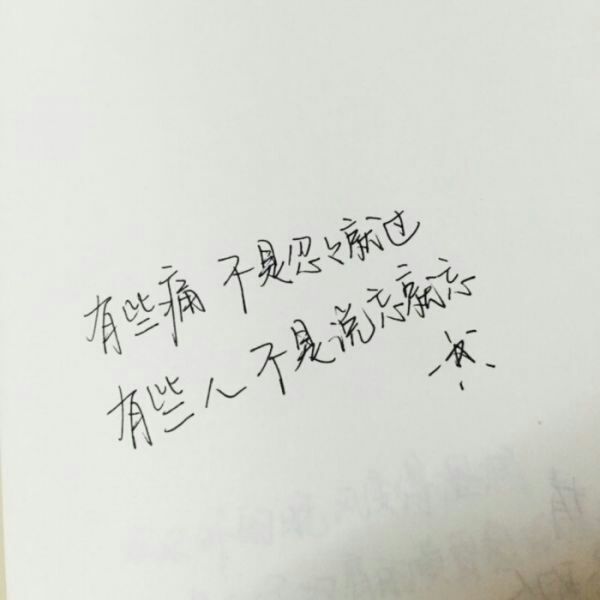 有些痛 不是忍々就过
有些人 不是说忘就忘